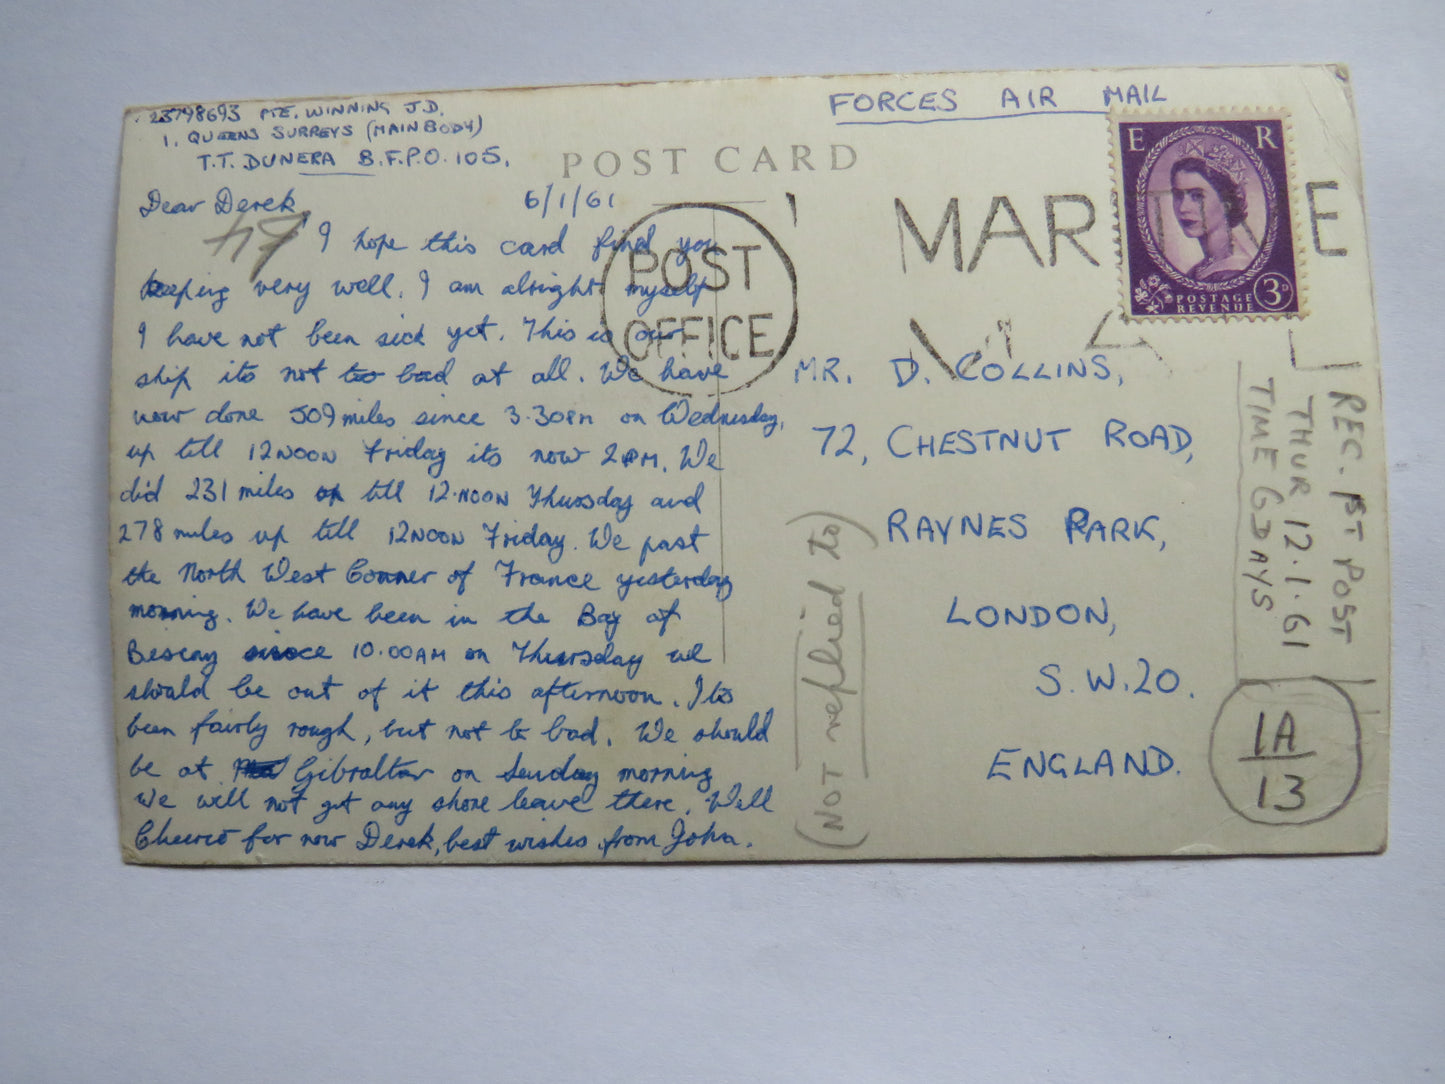 23798693 PTE. WINNING J.D.
1. QUEENS SURREYS (MAIN BODY)
T.T. DUNERA B.F.P.O. 105.
FORCES AIR MAIL
POST CARD
E R
POSTAGE
REVENUE
3D
POST
OFFICE
MAR E
Dear Derek 6/1/61
I hope this card find you
keeping very well. I am alright myself
I have not been sick yet. This is our
ship its not too bad at all. We have
now done 509 miles since 3.30PM on Wednesday,
up till 12 NOON Friday its now 2PM. We
did 231 miles till 12.NOON Thursday and
278 miles up till 12 NOON Friday. We past
the North West Corner of France yesterday
morning. We have been in the Bay of
Biscay since 10.00AM on Thursday we
should be out of it this afternoon. Its
been fairly rough, but not to bad. We should
be at Gibraltar on Sunday morning
We will not get any shore leave there. Well
Cheerio for now Derek, best wishes from John.
MR. D. COLLINS,
72, CHESTNUT ROAD,
RAYNES PARK,
LONDON,
S.W.20.
ENGLAND.
(NOT replied to)
REC. 1ST POST
THUR 12.1.61
TIME 6 DAYS
1A
13